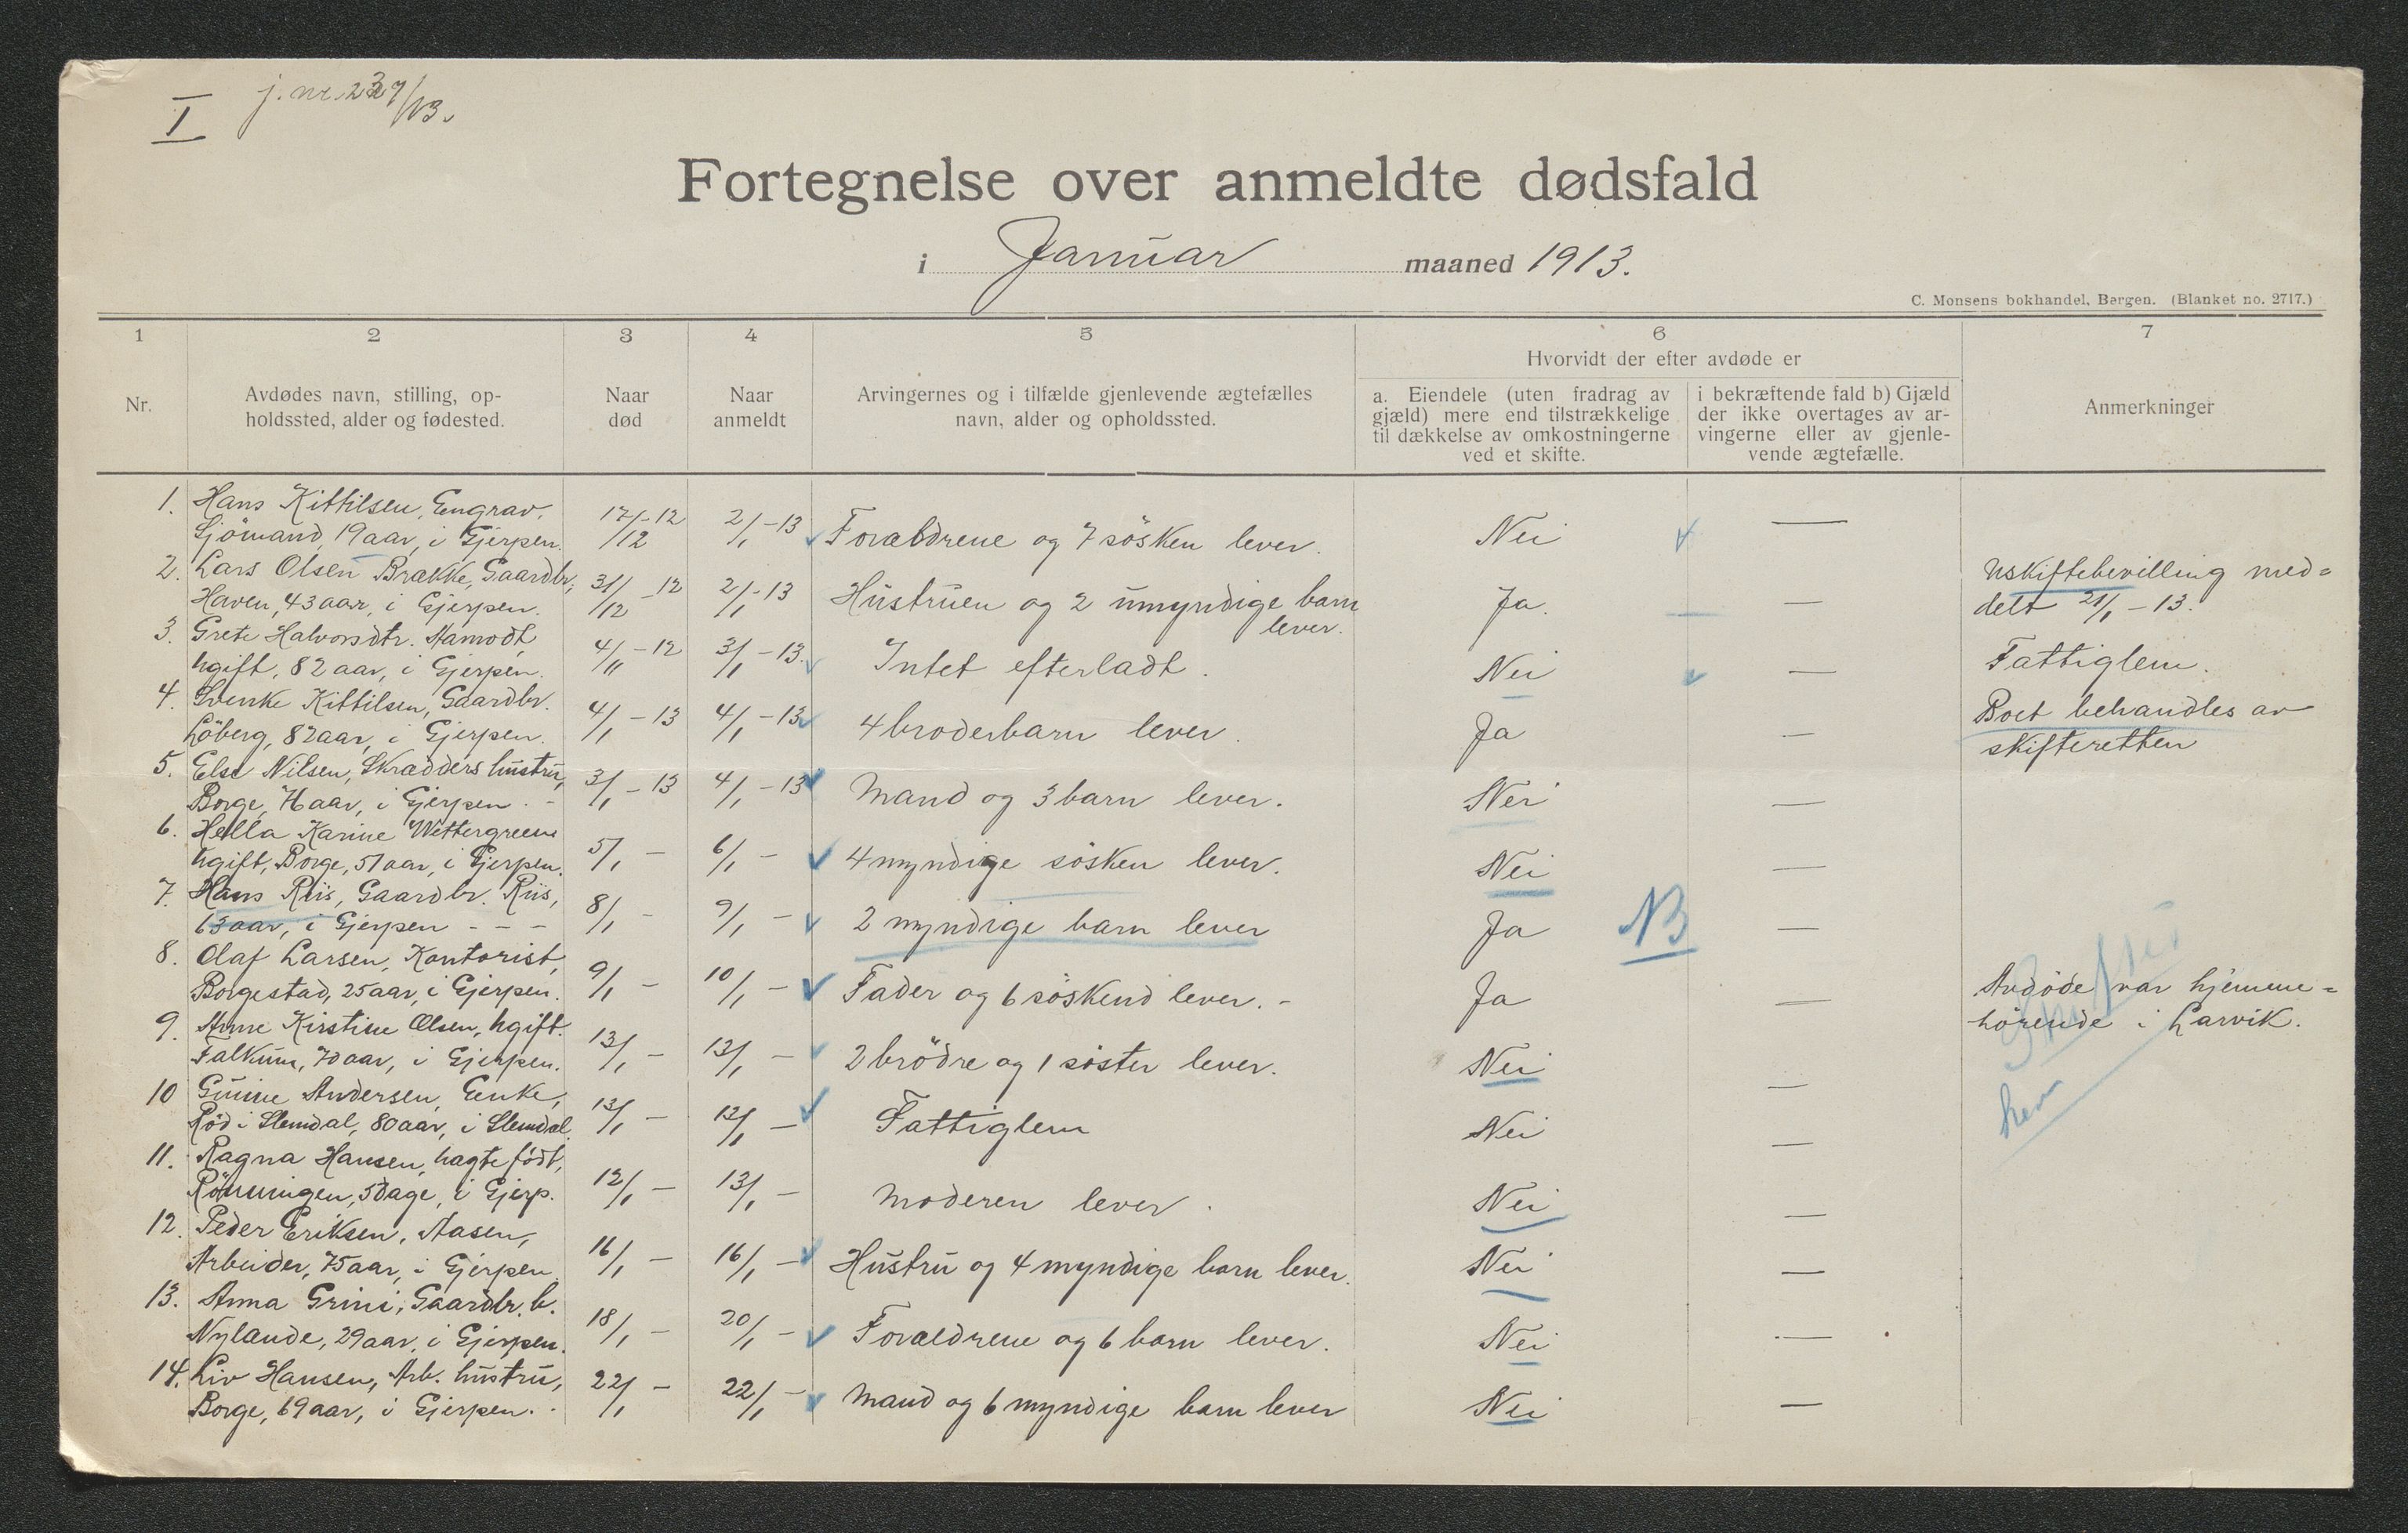 I
j. nr. 237/13.
Fortegnelse over anmeldte dødsfald
i Januar maaned 1913.
C. Monsens bokhandel, Bergen. (Blanket no. 2717.)
1 2 3 4 5 6 7
Hvorvidt der efter avdøde er
Nr.
Avdødes navn, stilling, op-
holdssted, alder og fødested.
Naar
død
Naar
anmeldt
Arvingernes og i tilfælde gjenlevende ægtefælles
navn, alder og opholdssted.
a. Eiendele (uten fradrag av
gjæld) mere end tilstrækkelige
til dækkelse av omkostningerne
ved et skifte.
i bekræftende fald b) Gjæld
der ikke overtages av ar-
vingerne eller av gjenle-
vende ægtefælle.
Anmerkninger
1. Hans Kittilsen, Engrav,
Sjömand, 19 aar, i Gjerpen. 17/12 -12 2/1 -13 Forældrene og 7 søsken lever. Nei —
2. Lars Olsen Brække, Gaardbr,
Haven, 43 aar, i Gjerpen. 31/12 -12 2/1 -13 Hustruen og 2 umyndige barn
lever. Ja. — Uskiftebevilling med=
delt 21/1 -13.
3. Grete Halvorsdtr.
Ugift, 82 aar, i Gjerpen. 4/11 -12 3/1 -13. Intet efterladt. Nei — Fattiglem.
4. Svenke Kittilsen, Gaardbr.
Löberg, 82 aar, i Gjerpen. 4/1 -13 4/1 -13 4 broderbarn lever. Ja — Boet behandles av
skifteretten
5. Else Nilsen, Skrædders hustru,
Borge, 76 aar, i Gjerpen. - 3/1 -13 4/1 -13 Mand og 3 barn lever. Nei —
6. Hella Karine Wettergreen
Ugift, Borge, 51 aar, i Gjerpen. 5/1 - 6/1 - 4 myndige søsken lever. Nei —
7. Hans Riis, Gaardbr. Riis,
63 aar, i Gjerpen - - - 8/1 - 9/1 - 2 myndige barn lever Ja NB —
8. Olaf Larsen, Kontorist,
Borgestad, 25 aar, i Gjerpen. 9/1 - 10/1 - Fader og 6 söskend lever. - Ja — Avdöde var hjemme=
hörende i Larvik.
her
9. Anne Kirstine Olsen, Ugift.
Falkum, 70 aar, i Gjerpen. 13/1 - 13/1 - 2 brödre og 1 söster lever. Nei —
10 Gunine Andersen, Enke,
Röd i Slemdal, 80 aar, i Slemdal. 13/1 - 13/1 - Fattiglem Nei —
11. Ragna Hansen, uægte födt,
Rönningen, 5 dage, i Gjerp. 12/1 - 13/1 - Moderen lever. Nei —
12. Peder Eriksen, Aasen,
Arbeider, 75 aar, i Gjerpen. 16/1 - 16/1 - Hustru og 4 myndige barn lever. Nei —
13. Anna Grini, Gaardbr. h.
Nylænde, 29 aar, i Gjerpen. 18/1 - 20/1 - Forældrene og 6 barn lever. Nei —
14. Liv Hansen, Arb. hustru,
Borge, 69 aar, i Gjerpen. 22/1 - 22/1 - Mand og 6 myndige barn lever Nei —